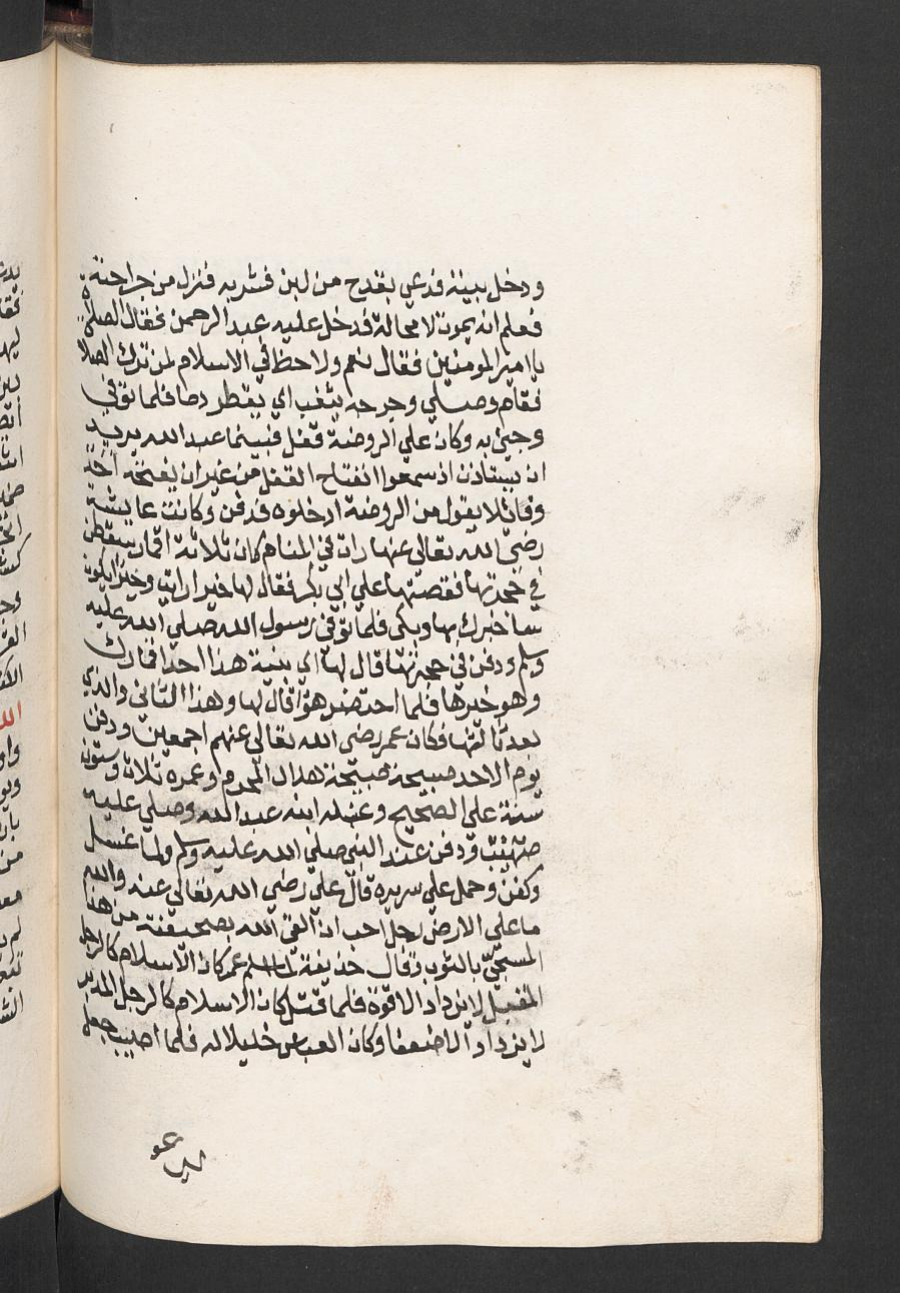 ودخل بيته فدعي بقدح من لبن فشربه فنزل من جراحته
فعلم انه يموت لا محالة فدخل عليه عبد الرحمن فقال الصلاة
يا امير المومنين فقال نعم ولا حظ في الاسلام لمن ترك الصلاة
فقام وصلي وجرحه يثغب اي يقطر دما فلما توفي
وجيئ به وكان علي الروضة قفل فبينما عبد الله يريد
ان يستاذن اذ سمعوا انفتاح القفل من غير ان يفتحه احد
وقائلا يقول من الروضة ادخلوه فدفن وكانت عايشة
رضي الله تعالي عنها رات في المنام كان ثلاثة اقمار سقطن
في حجرتها فقصتها علي ابي بكر فقال لها خيرا رايت وخيرا يكون
ساخبرك بها وبكي فلما توفي رسول الله صلي الله عليه
وسلم ودفن في حجرتها قال لها اي بنية هذا احد اقمارك
وهو خيرها فلما احتضر هو قال لها وهذا الثاني والذي
بعد ثالثها فكان عمر رضي الله تعالي عنهم اجمعين ودفن
يوم الاحد صبيحة هلال المحرم وعمره ثلاث وستون
سنة علي الصحيح وغسله ابنه عبد الله وصلي عليه
صهيب ودفن عند النبي صلي الله عليه وسلم ولما غسل
وكفن وحمل علي سريره قال علي رضي الله تعالي عنه والله
ما علي الارض رجل احب ان القي الله بصحيفته من هذا
المسجي بالثوب وقال حذيفة لما اسلم عمر كان الاسلام كالرجل
المقبل لا يزداد الا قوة فلما قتل كان الاسلام كالرجل المدبر
لا يزداد الا ضعفا وكان العباس خليلا له فلما اصيب جعل
يدعو